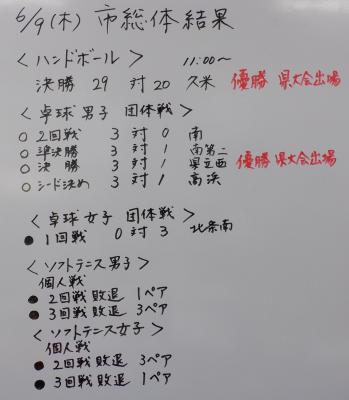 6/9(木) 市総体結果
<ハンドボール> 11:00~
決勝 29 対 20 久米 優勝 県大会出場
<卓球男子 団体戦>
○ 2回戦 3 対 0 南
○ 準決勝 3 対 1 南第二
○ 決勝 3 対 1 県立西 優勝 県大会出場
○ シード決め 3 対 1 高浜
<卓球女子 団体戦>
● 1回戦 0 対 3 北条南
<ソフトテニス男子>
個人戦
● 2回戦敗退 1ペア
● 3回戦敗退 3ペア
<ソフトテニス女子>
個人戦
● 2回戦敗退 3ペア
● 3回戦敗退 1ペア